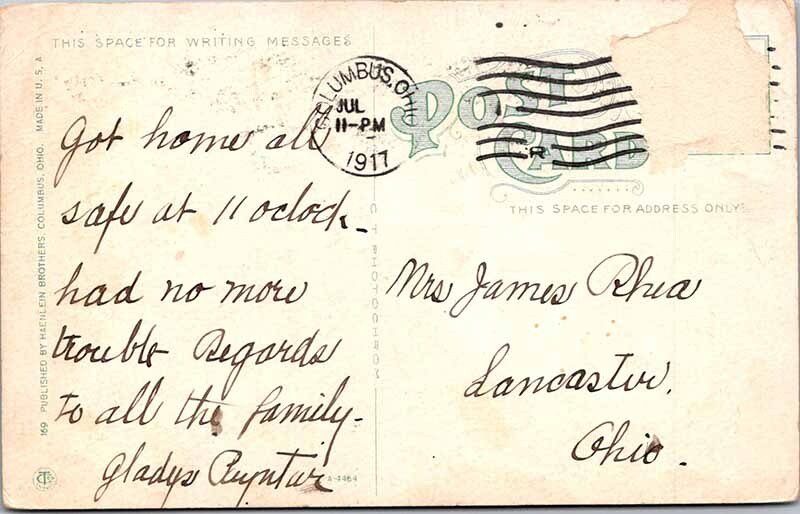 THIS SPACE FOR WRITING MESSAGES
COLUMBUS, OHIO
JUL
11-PM
1917
POST
CARD
R
THIS SPACE FOR ADDRESS ONLY
Got home all
safe at 11 oclock
had no more
trouble Regards
to all the family
Gladys
Mrs James Rhea
Lancaster,
Ohio.
169 PUBLISHED BY HAENLEIN BROTHERS, COLUMBUS, OHIO. MADE IN U.S.A
A-4464